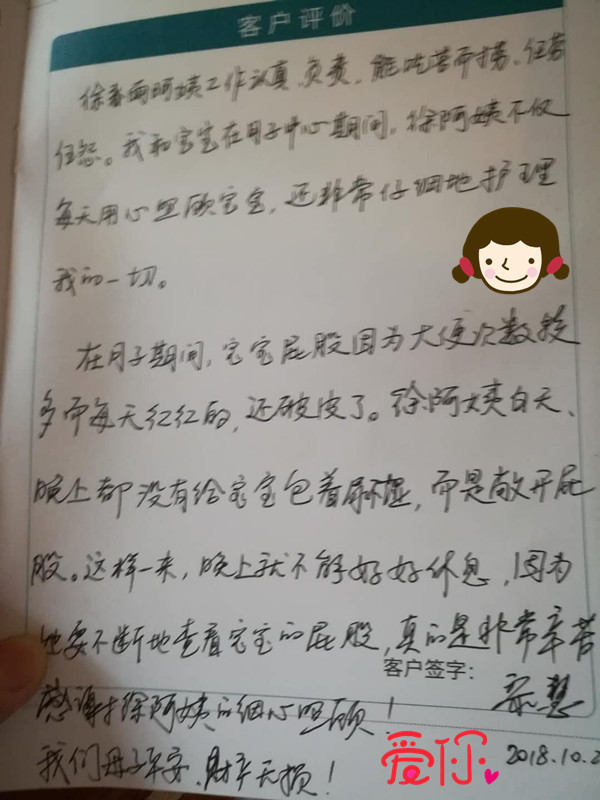 客户评价
徐春雨阿姨工作认真、负责、能吃苦而捞、任劳
任怨。我和宝宝在月子中心期间,徐阿姨不仅
每天用心照顾宝宝,还非常仔细地护理
我的一切。
在月子期间,宝宝屁股因为大便次数较
多而每天红红的,还破皮了。徐阿姨白天、
晚上都没有给宝宝包着尿不湿,而是敞开屁
股。这样一来,晚上就不能好好休息,因为
她要不断地查看宝宝的屁股,真的是非常辛苦
客户签字:
感谢徐阿姨的细心照顾!
我们母子平安,财平无损!
爱你
2018.10.2